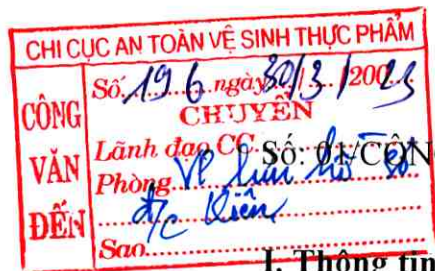 CHI CỤC AN TOÀN VỆ SINH THỰC PHẨM
CÔNG VĂN ĐẾN
Số 196 ngày 30/3/2023
CHUYỂN
Lãnh đạo CC
Phòng VP lưu hồ sơ
đ/c Kiên
Sao
Số: 01/CÔN
I. Thông tin